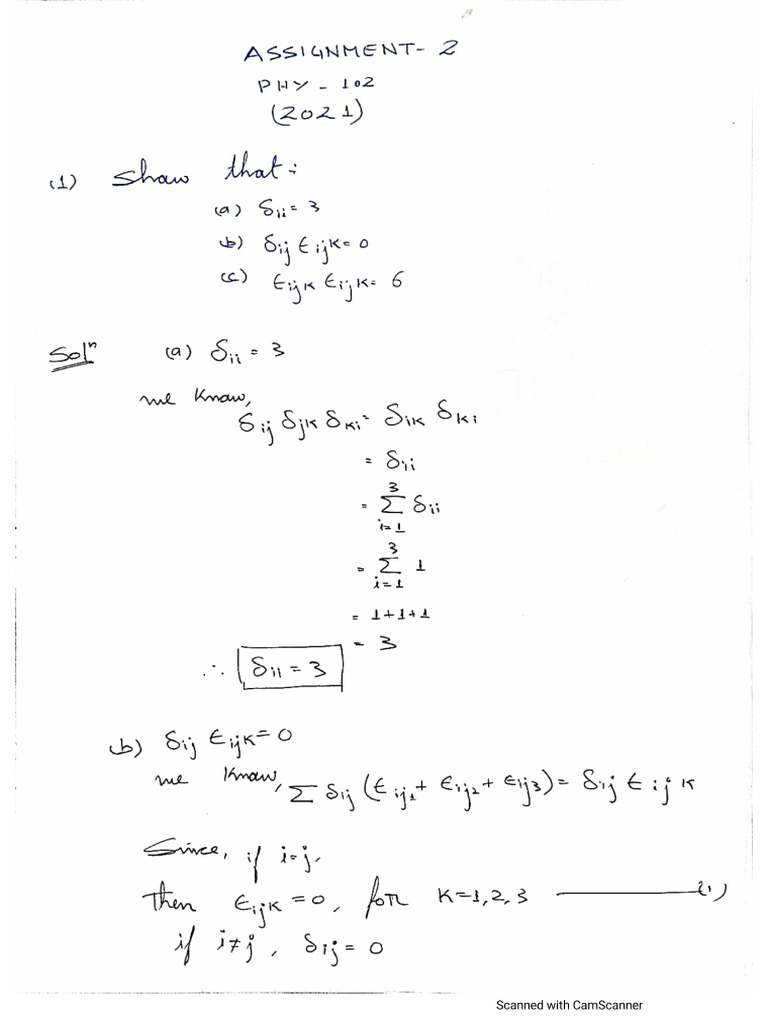 ASSIGNMENT- 2
PHY - 102
(2021)
(1) Show that:
(a) δii = 3
(b) δij ϵijk = 0
(c) ϵijk ϵijk = 6
Solⁿ (a) δii = 3
we know,
δij δjk δki = δik δki
= δii
= 3∑i=1 δii
= 3∑i=1 1
= 1+1+1
= 3
∴ δii = 3
(b) δij ϵijk = 0
we know,
∑ δij (ϵij1 + ϵij2 + ϵij3) = δij ϵijk
Since, if i=j,
then ϵijk = 0, for k=1,2,3 ——— (1)
if i≠j, δij = 0
Scanned with CamScanner